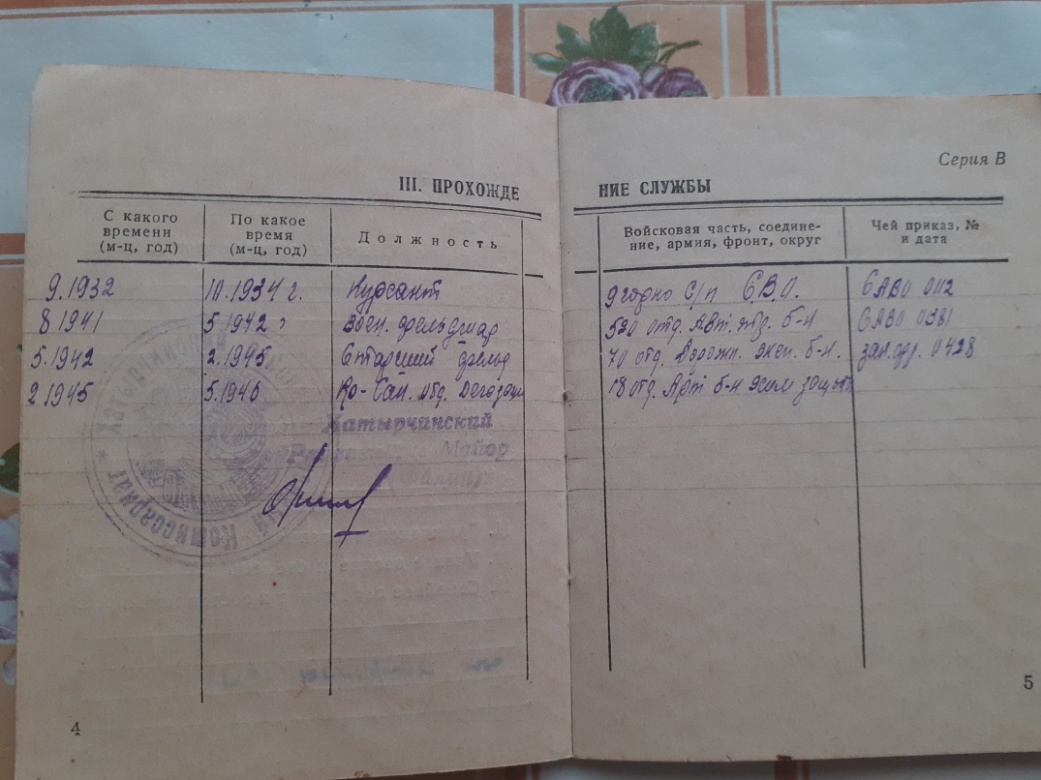 Серия В
III. ПРОХОЖДЕ НИЕ СЛУЖБЫ
С какого времени (м-ц, год) По какое время (м-ц, год) Должность Войсковая часть, соедине-ние, армия, фронт, округ Чей приказ, № и дата
9.1932 10.1934 г. Курсант С/п САВО 0112
8 1941 5.1942 Воен. фельдшар отд. б-н САВО 0381
5.1942 2.1945 Старший фельд 70 отд. Дорожн. экс. б-н. 0428
2 1945 5.1946 Сан. отд. Дегазац 18 отд. б-н хим защит
Хатырчинский
Майор
Комиссариат
4
5